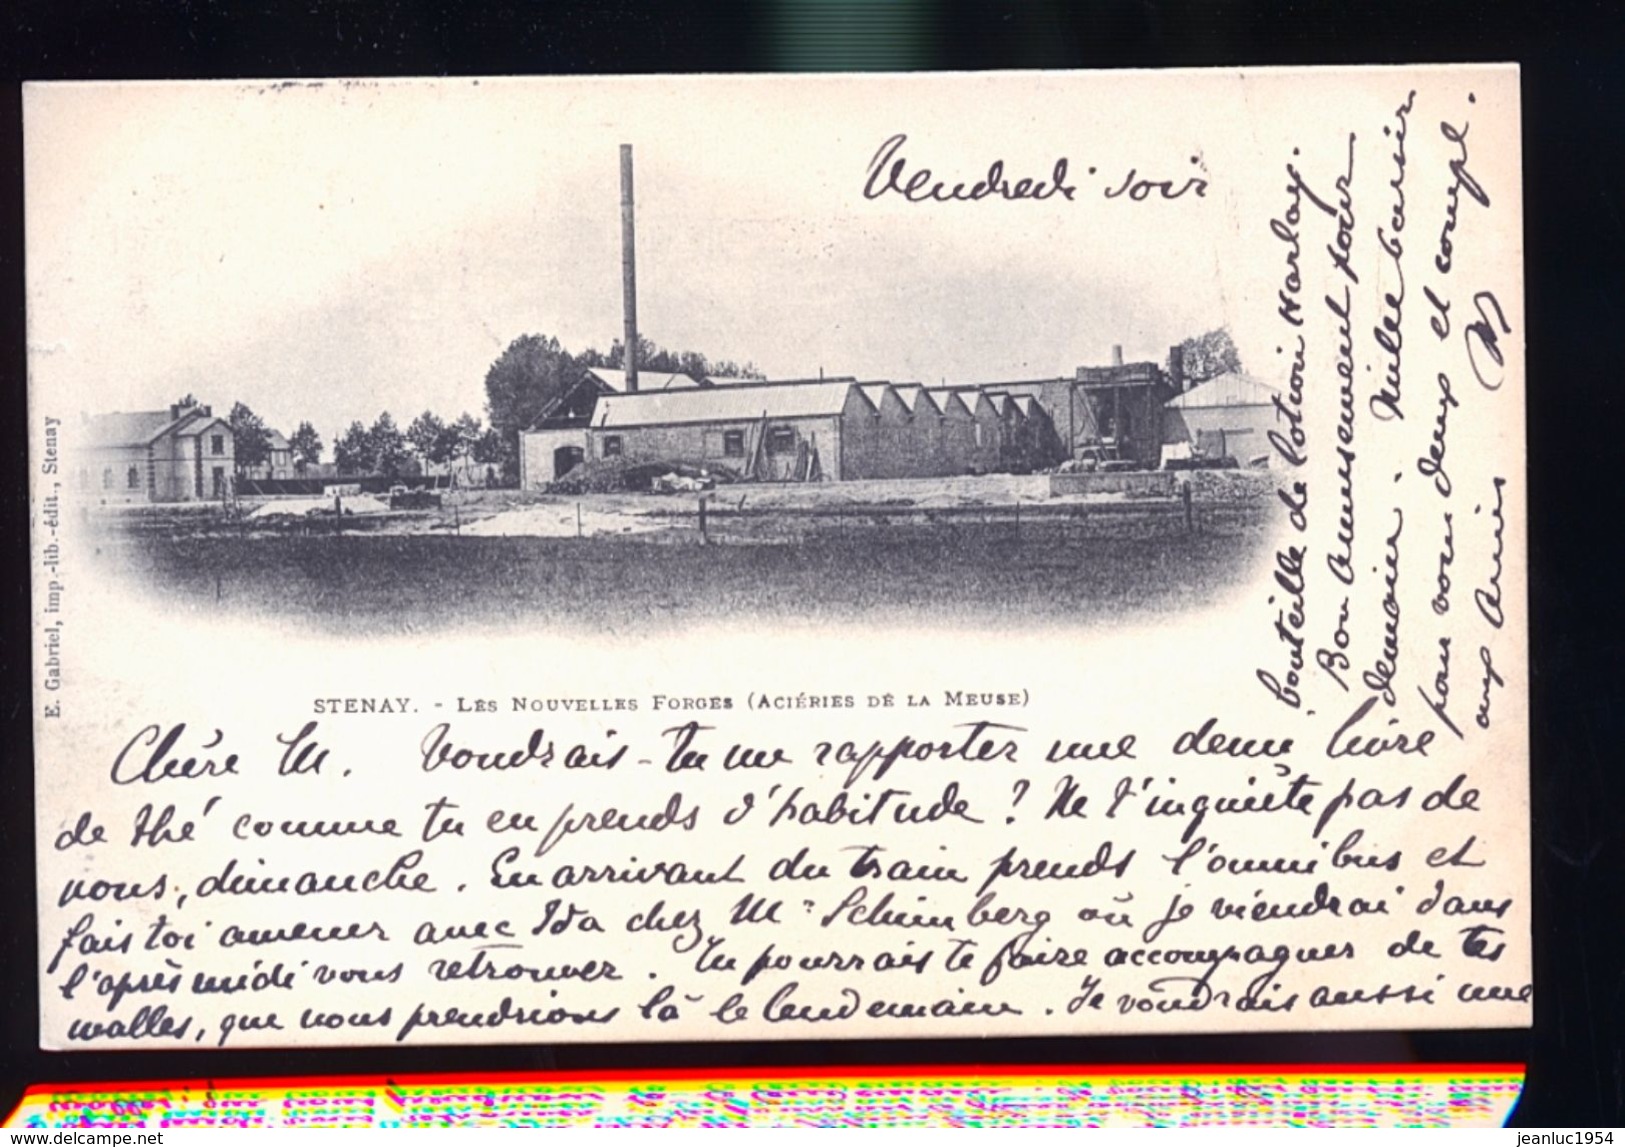 Vendredi soir
E. Gabriel, imp.-lib.-édit., Stenay
STENAY. - LES NOUVELLES FORGES (ACIÉRIES DE LA MEUSE)
Chère M. Voudrais-tu me rapporter une demi livre
de thé comme tu en prends d'habitude ? Ne t'inquiète pas de
nous, dimanche. En arrivant du train prends l'omnibus et
fais toi amener avec Ida chez Mr Schimberg où je viendrai dans
l'après midi vous retrouver. Tu pourrais te faire accompagner de tes
malles, que nous prendrions là le lendemain. Je voudrais aussi une
bouteille de lotion Harlay.
Bon amusement pour
demain. Mille baisers
pour vous deux et compl.
aux amis M
www.delcampe.net
jeanluc1954